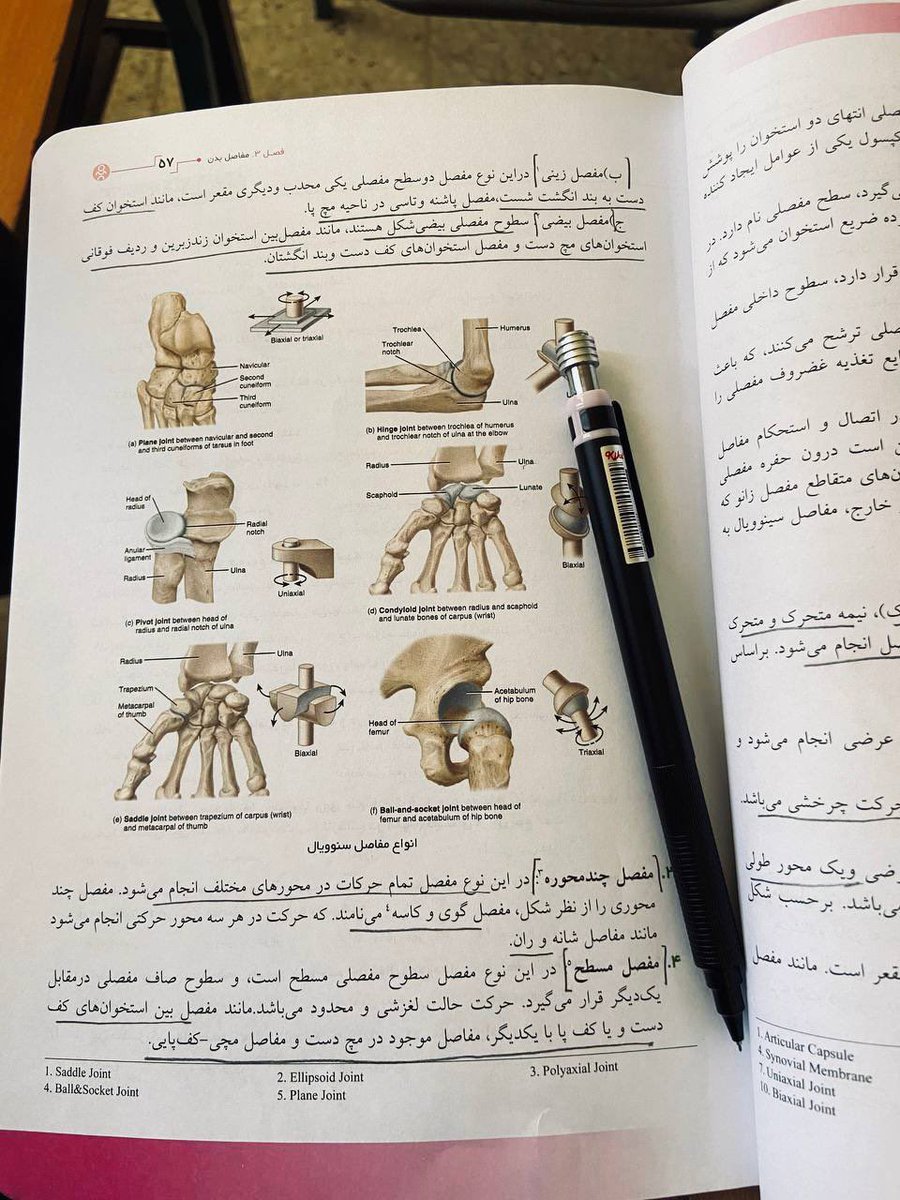 فصل ۳. مفاصل بدن
۵۷
ب)مفصل زینی] دراین نوع مفصل دوسطح مفصلی یکی محدب ودیگری مقعر است، مانند استخوان کف
دست به بند انگشت شست،مفصل پاشنه وتاسی در ناحیه مچ پا.
ج)مفصل بیضی] سطوح مفصلی بیضی‌شکل هستند، مانند مفصل‌بین استخوان زندزبرین و ردیف فوقانی
استخوان‌های مچ دست و مفصل استخوان‌های کف دست وبند انگشتان.
Biaxial or triaxial
Navicular
Second
cuneiform
Third
cuneiform
(a) Plane joint between navicular and second
and third cuneiforms of tarsus in foot
Trochlea
Humerus
Trochlear
notch
Ulna
(b) Hinge joint between trochlea of humerus
and trochlear notch of ulna at the elbow
Head of
radius
Radial
notch
Anular
ligament
Radius
Ulna
Uniaxial
(c) Pivot joint between head of
radius and radial notch of ulna
Radius
Ulna
Scaphoid
Lunate
Biaxial
(d) Condyloid joint between radius and scaphoid
and lunate bones of carpus (wrist)
Radius
Ulna
Trapezium
Metacarpal
of thumb
Biaxial
(e) Saddle joint between trapezium of carpus (wrist)
and metacarpal of thumb
Acetabulum
of hip bone
Head of
femur
Triaxial
(f) Ball-and-socket joint between head of
femur and acetabulum of hip bone
انواع مفاصل سنوویال
[مفصل چندمحوره۳:] در این نوع مفصل تمام حرکات در محورهای مختلف انجام می‌شود. مفصل چند
محوری را از نظر شکل، مفصل گوی و کاسه۴ می‌نامند. که حرکت در هر سه محور حرکتی انجام می‌شود
مانند مفاصل شانه و ران.
۴.[مفصل مسطح۵] در این نوع مفصل سطوح مفصلی مسطح است، و سطوح صاف مفصلی درمقابل
یک‌دیگر قرار می‌گیرد. حرکت حالت لغزشی و محدود می‌باشد.مانند مفصل بین استخوان‌های کف
دست و یا کف پا با یکدیگر، مفاصل موجود در مچ دست و مفاصل مچی-کف‌پایی.
1. Saddle Joint
2. Ellipsoid Joint
3. Polyaxial Joint
4. Ball&Socket Joint
5. Plane Joint
صلی انتهای دو استخوان را پوشش
کپسول یکی از عوامل ایجاد کننده
می‌گیرد، سطح مفصلی نام دارد. در
ده ضریع استخوان می‌شود که از
قرار دارد، سطوح داخلی مفصل
صلی ترشح می‌کنند، که باعث
ایع تغذیه غضروف مفصلی را
در اتصال و استحکام مفاصل
است درون حفره مفصلی
ن‌های متقاطع مفصل زانو که
خارج، مفاصل سینوویال به
ک)، نیمه متحرک و متحرک
صل انجام می‌شود. براساس
عرضی انجام می‌شود و
حرکت چرخشی می‌باشد.
رضی ویک محور طولی
می‌باشد. برحسب شکل
مقعر است. مانند مفصل
1. Articular Capsule
4. Synovial Membrane
7. Uniaxial Joint
10. Biaxial Joint